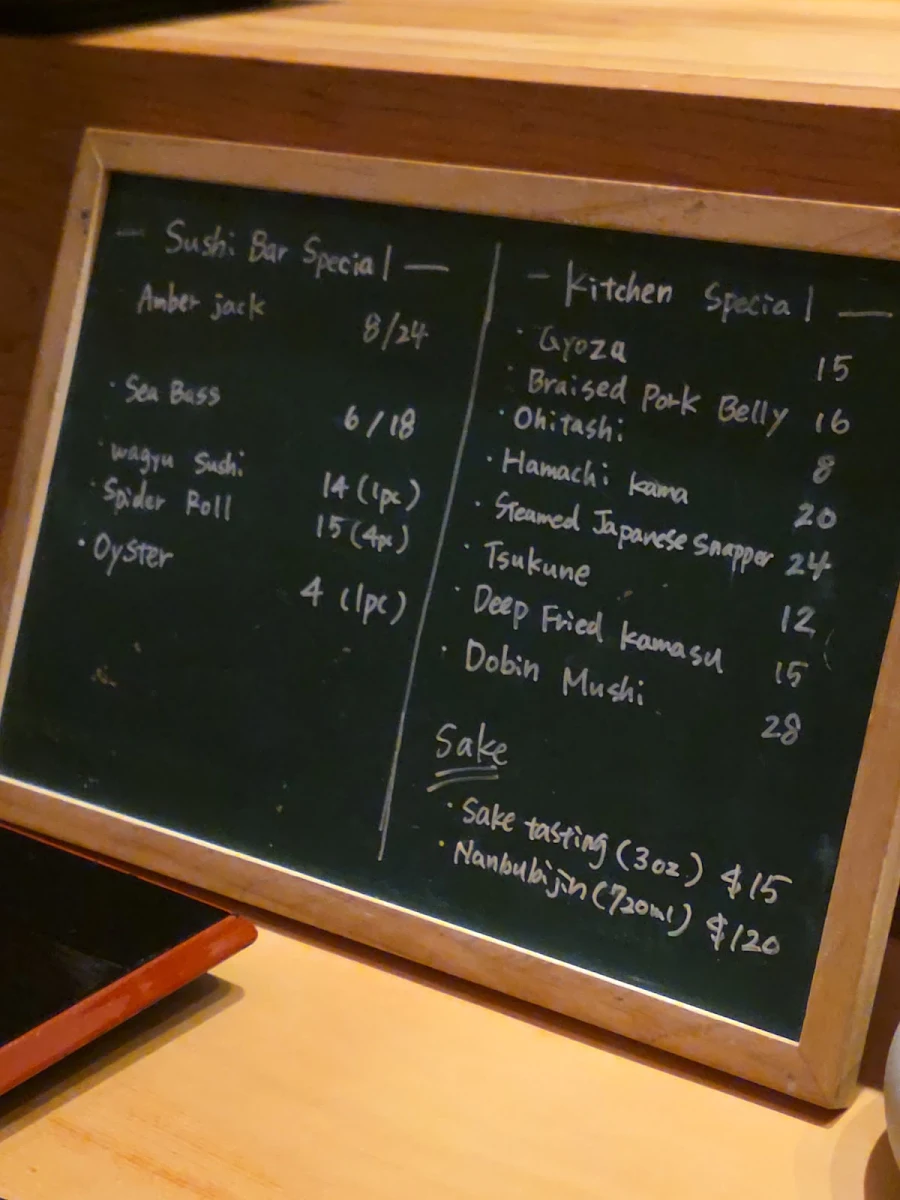 — Sushi Bar Special —
Amber jack 8/24
· Sea Bass 6/18
· wagyu Sushi 14 (1pc)
· Spider Roll 15 (4pc)
· Oyster 4 (1pc)
— Kitchen Special —
· Gyoza 15
· Braised Pork Belly 16
· Ohitashi 8
· Hamachi kama 20
· Steamed Japanese Snapper 24
· Tsukune 12
· Deep Fried kamasu 15
· Dobin Mushi 28
Sake
· Sake tasting (3oz.) $15
· Nanbubijin (720ml) $120